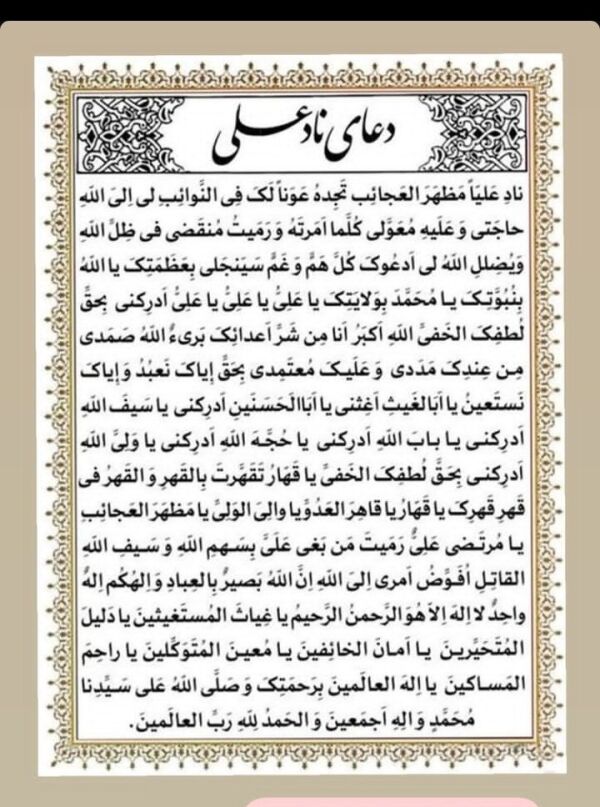 دعای ناد علی
نادِ عَلیَاً مَظهَرَ العَجائِبِ تَجِدهُ عَوناً لَکَ فِی النَّوائِبِ لی اِلیَ اللهِ
حاجَتی وَ عَلَیهِ مُعَوَّلی کُلَّما اَمَرتَهُ وَ رَمَیتُ مُنقَضی فی ظِلِّ اللهِ
وَیُضلِلِ اللهُ لی اَدعُوکَ کُلَّ هَمٍّ وَ غَمٍّ سَیَنجَلی بِعَظَمَتِکَ یا اللهُ
بِنُبُوَّتِکَ یا مُحَمَّدَ بِوَلایَتِکَ یا عَلِیُّ یا عَلِیُّ یا عَلِیُّ اَدرِکنی بِحَقِّ
لُطفِکَ الخَفیِّ اللهُ اَکبَرُ اَنا مِن شَرِّ اَعدائِکَ بَریءٌ اللهُ صَمَدی
مِن عِندِکَ مَدَدی وَ عَلَیکَ مُعتَمِدی بِحَقِّ اِیاکَ نَعبُدُ وَ اِیاکَ
نَستَعینُ یا اَبالغَیثِ اَغِثنی یا اَبَاالحَسَنَینِ اَدرِکنی یا سَیفَ اللهِ
اَدرِکنی یا بابَ اللهِ اَدرِکنی یا حُجَّهَ اللهِ اَدرِکنی یا وَلِیَّ اللهِ
اَدرِکنی بِحَقِّ لُطفِکَ الخَفیِّ یا قَهّارُ تَقَهَّرتَ بِالقَهرِ وَ القَهرُ فی
قَهرِ قَهرِکَ یا قَهّارُ یا قاهِرَ العَدُوِّ یا والِیَ الوَلِیِّ یا مَظهَرَ العَجائِبِ
یا مُرتَضی عَلِیُّ رَمَیتَ مَن بَغی عَلَیَّ بِسَهمِ اللهِ وَ سَیفِ اللهِ
القاتِلِ اُفَوِّضُ اَمری اِلَی اللهِ اِنَّ اللهَ بَصیرٌ بِالعِبادِ وَ اِلهُکُم اِلهٌ
واحِدٌ لا اِلهَ اِلاّ هُوَ الرَّحمنُ الرَّحیمُ یا غِیاثَ المُستَغیثینَ یا دَلیلَ
المُتَحَیِّرینَ یا اَمانَ الخائِفینَ یا مُعینَ المُتَوَکِّلینَ یا راحِمَ
المَساکینَ یا اِلهَ العالَمینَ بِرَحمَتِکَ وَ صَلَّی اللهُ عَلی سَیِّدِنا
مُحَمَّدٍ وَ الِهِ اَجمَعینَ وَ الحَمدُ لِلّهِ رَبِّ العالَمینَ.